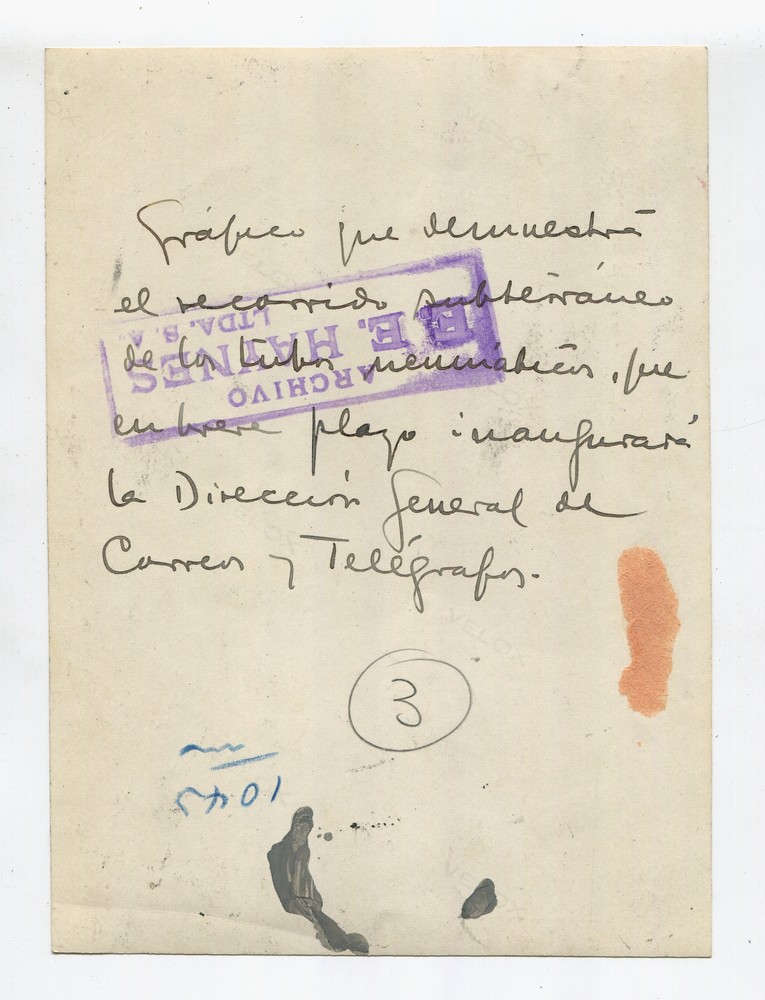 Gráfico que demuestra
el recorrido subterráneo
de los tubos neumáticos, que
en breve plazo inaugurará
la Dirección General de
Correos y Telégrafos.
ARCHIVO
E. HAYNES
LTDA. S. A.
3
1045
VELOX
VELOX
VELOX